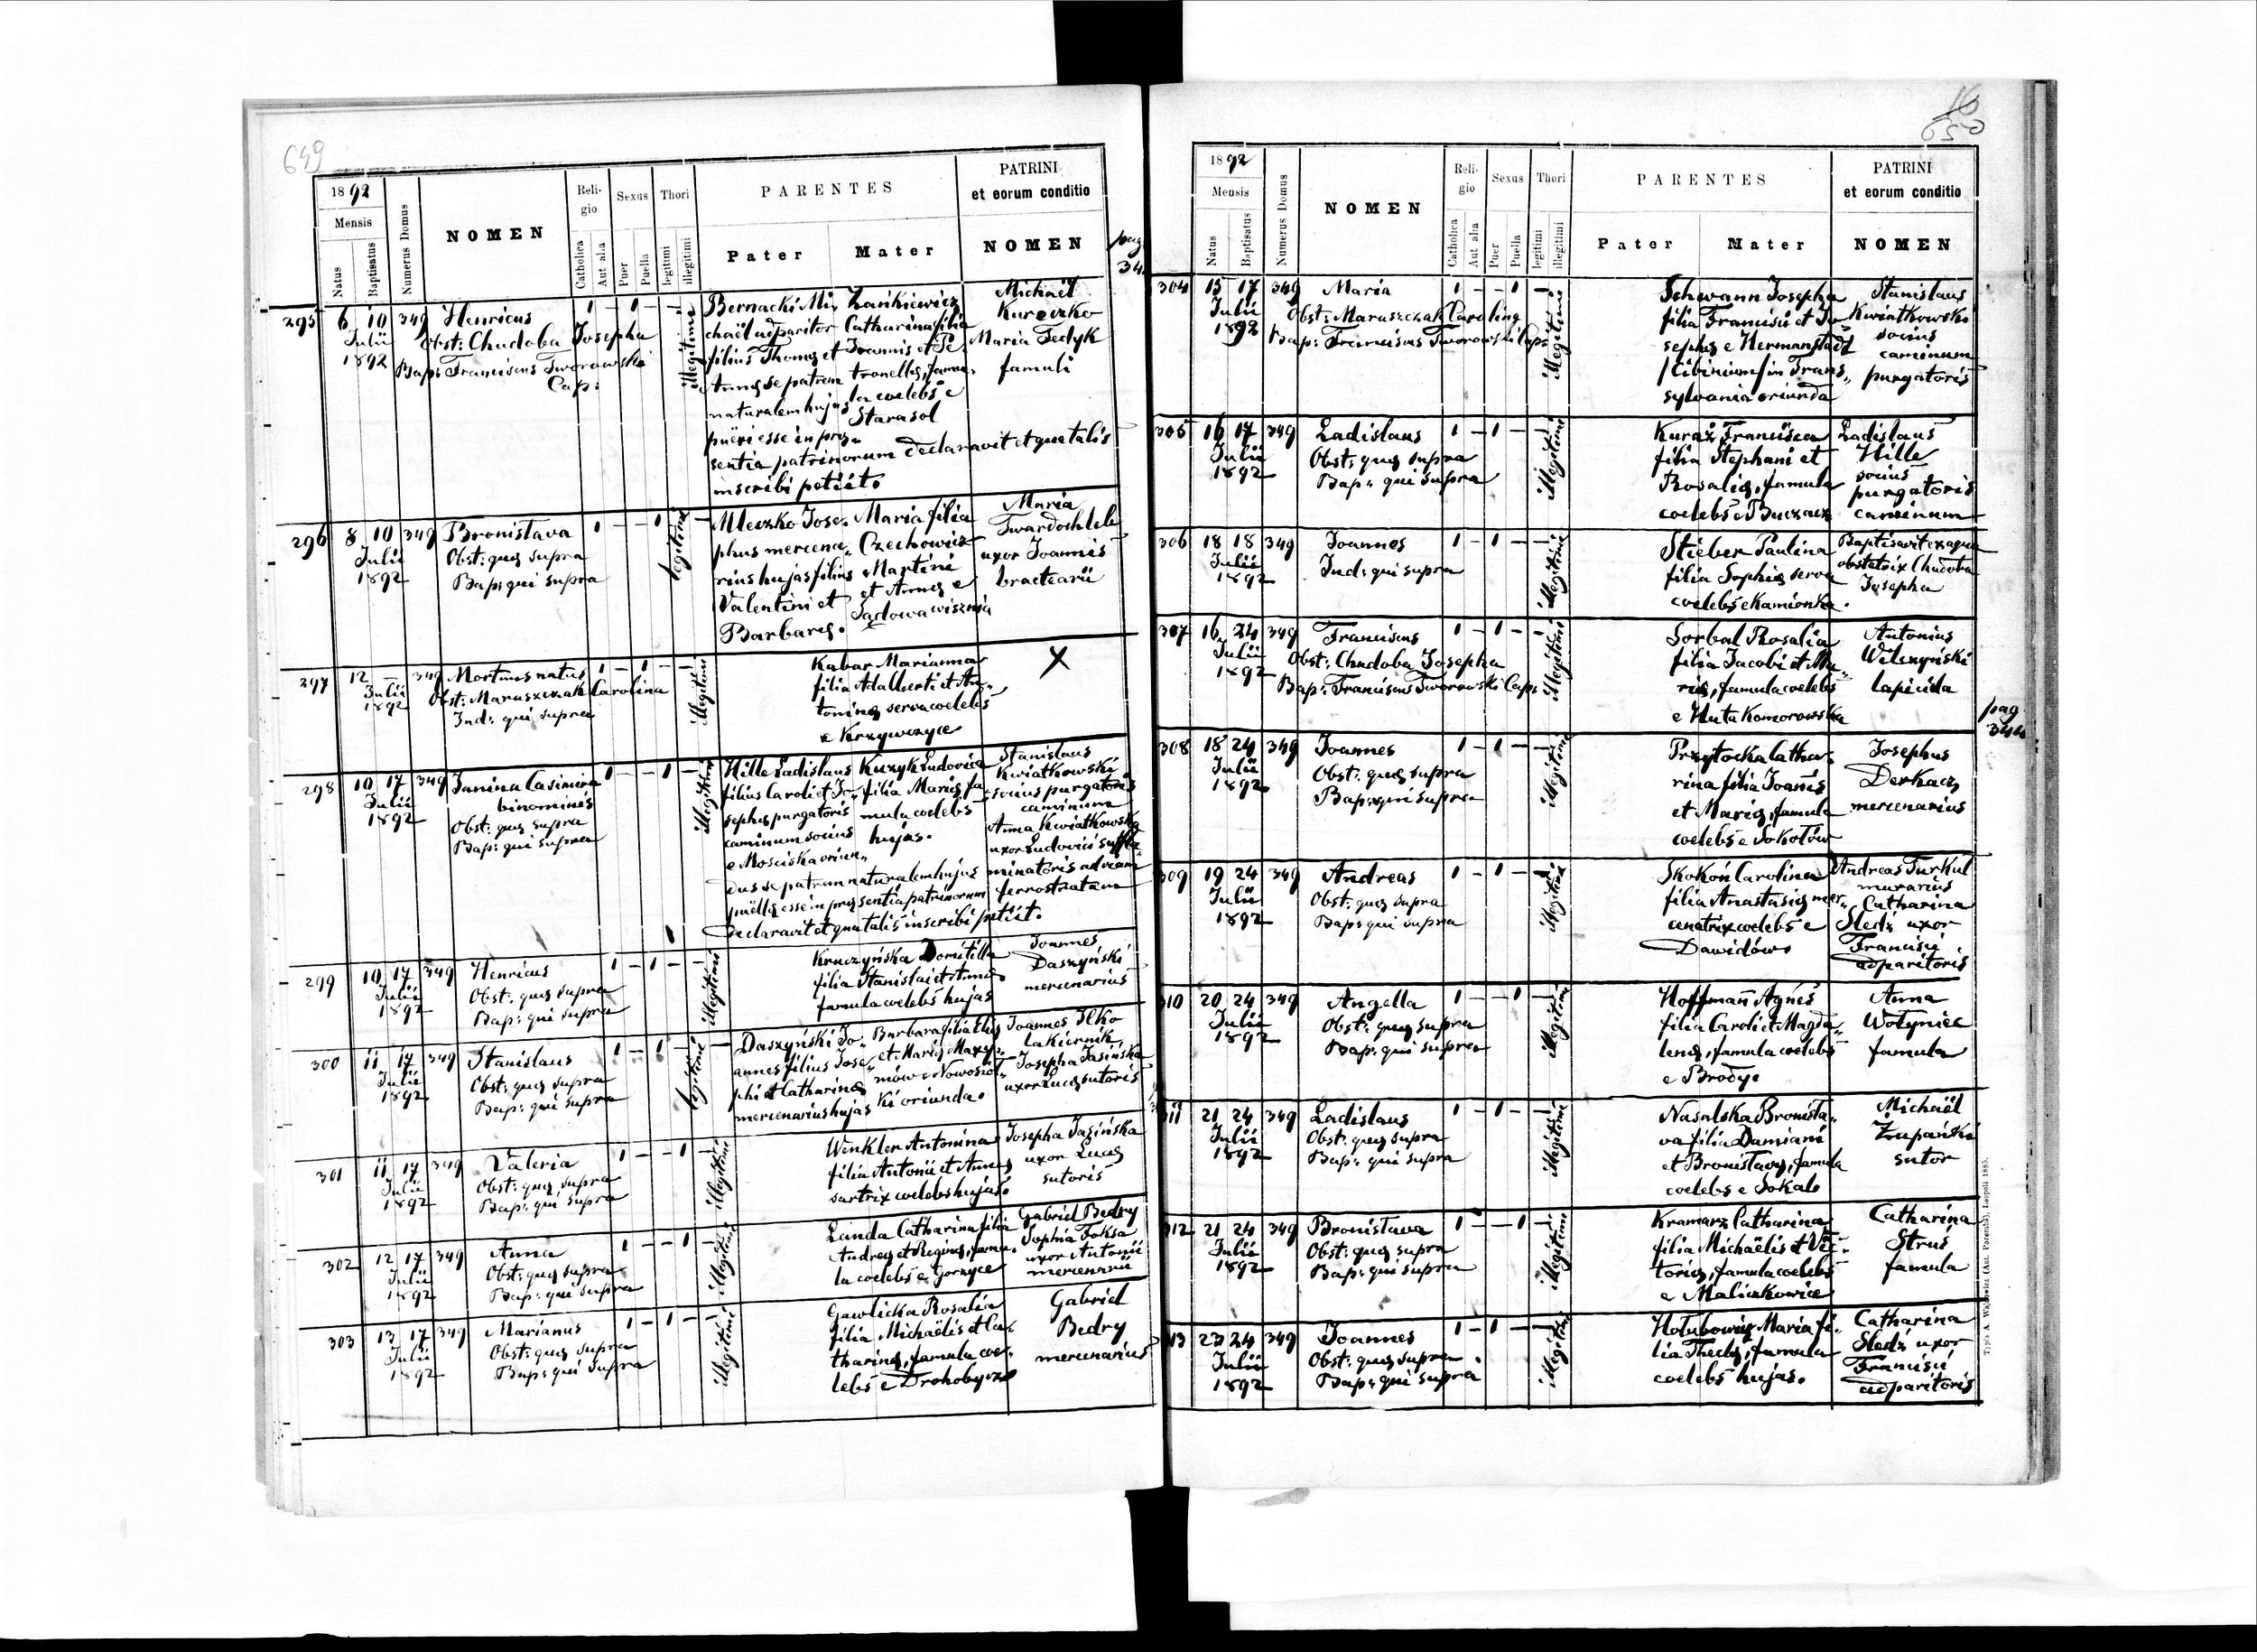 649
1892
Mensis
Natus
Baptisatus
Numerus Domus
NOMEN
Reli-
gio
Catholica
Aut alia
Sexus
Puer
Puella
Thori
legitimi
illegitimi
PARENTES
Pater
Mater
PATRINI
et eorum conditio
NOMEN
pag
34
295
6 10
Julii
1892
349
Henricus
Obst: Chudoba Josepha
Bap: Franciscus Tworowski
Cap:
1 - 1 - -
illegitimi
Bernacki Mi-
chaël adparitor
filius Thomæ et
Annæ se patrem
naturalem hujus
pueri esse in præ-
sentia patrinorum declaravit et qua talis
inscribi petiit.
Catharina filia
Joannis et Pe-
tronellæ, famu-
la coelebs e
Starasol
Michaël
Kureczko
Maria Fedyk
famuli
296
8 10
Julii
1892
349
Bronislava
Obst: quæ supra
Bap: qui supra
1 - - 1
legitimi
Mleczko Jose-
phus mercena-
rius hujas filius
Valentini et
Barbaræ.
Maria filia
Czechowicz
Martini
et Annæ e
Sądowa wisznia
Maria
Twardochleb
uxor Joannis
bractearii
297
12 -
Julii
1892
349
Mortuus natus
Obst: Maruszczak Carolina
Ind: qui supra
1 - 1 - -
illegitimi
Kabar Marianna
filia Adalberti et An-
toninæ serva coelebs
e Krzywczyce
X
298
10 17
Julii
1892
349
Janina Casimira
binomines
Obst: quæ supra
Bap: qui supra
1 - - 1 -
illegitimi
Hille Ladislaus
filius Caroli et Jo-
sephæ purgatoris
caminum socius
e Mosciska oriun-
dus se patrem naturalem hujus
puellæ esse in præsentia patrinorum
declaravit et qua talis inscribi petiit.
Kuzyk Ludovica
filia Mariæ fa-
mula coelebs
hujas.
Stanislaus
Kwiatkowski
socius purgatoris
caminum
Anna Kwiatkowska
uxor Ludovici suffla-
minatoris ad viam
ferrostratam
299
10 17
Julii
1892
349
Henricus
Obst: quæ supra
Bap: qui supra
1 - 1 - -
illegitimi
Kruczyńska Domitilla
filia Stanislai et Annæ
famula coelebs hujas
Joannes
Daszyński
mercenarius
300
11 17
Julii
1892
349
Stanislaus
Obst: quæ supra
Bap: qui supra
1 - 1 -
legitimi
Daszyński Jo-
annes filius Jose-
phi et Catharinæ
mercenarius hujas
Barbara filia
et Mariæ
mów e Nowosiół-
ki oriunda.
Joannes Ilko
Lakiernik
Josepha Jasińska
uxor Lucæ sutoris
301
11 17
Julii
1892
349
Valeria
Obst: quæ supra
Bap: qui supra
1 - - 1 -
illegitimi
Winkler Antonina
filia Antonii et Annæ
sartrix coelebs hujas.
Josepha Jasińska
uxor Lucæ
sutoris
302
12 17
Julii
1892
349
Anna
Obst: quæ supra
Bap: qui supra
1 - - 1 -
illegitimi
Landa Catharina filia
Andreæ et Reginæ, famu-
la coelebs e Gorzyce
Gabriel Bedry
Sophia Foksa
uxor Antonii
mercenarii
303
13 17
Julii
1892
349
Marianus
Obst: quæ supra
Bap: qui supra
1 - 1 - -
illegitimi
Gawlicka Rosalia
filia Michaëlis et Ca-
tharinæ, famula coe-
lebs e Drohobycz
Gabriel
Bedry
mercenarius
16
650
1892
Mensis
Natus
Baptisatus
Numerus Domus
NOMEN
Reli-
gio
Catholica
Aut alia
Sexus
Puer
Puella
Thori
legitimi
illegitimi
PARENTES
Pater
Mater
PATRINI
et eorum conditio
NOMEN
304
15 17
Julii
1892
349
Maria
Obst: Maruszczak Carolina
Bap: Franciscus Tworowski Cap:
1 - - 1 -
illegitimi
Schwann Josepha
filia Francisci et Jo-
sephæ e Hermanstadt
/Cibinium/ in Trans-
sylvania oriunda
Stanislaus
Kwiatkowski
socius
caminum
purgatoris
305
16 17
Julii
1892
349
Ladislaus
Obst: quæ supra
Bap: qui supra
1 - 1 - -
illegitimi
Kuraż Francisca
filia Stephani et
Rosaliæ, famula
coelebs e Buczacz
Ladislaus
Hille
socius
purgatoris
caminum
306
18 18
Julii
1892
349
Joannes
Ind: qui supra
1 - 1 - -
illegitimi
Stieber Paulina
filia Sophiæ serva
coelebs e Kamionka.
Baptisavit ex aqua
obstetrix Chudoba
Josepha
307
16 24
Julii
1892
349
Franciscus
Obst: Chudoba Josepha
Bap: Franciscus Tworowski Cap:
1 - 1 - -
illegitimi
Sorbal Rosalia
filia Jacobi et Ma-
riæ, famula coelebs
e Huta Komorowska
Antonius
Wilczyński
lapicida
pag
344
308
18 24
Julii
1892
349
Joannes
Obst: quæ supra
Bap: qui supra
1 - 1 - -
illegitimi
Przytocka Catha-
rina filia Joannis
et Mariæ, famula
coelebs e Sokołów
Josephus
Derkacz
mercenarius
309
19 24
Julii
1892
349
Andreas
Obst: quæ supra
Bap: qui supra
1 - 1 - -
illegitimi
Skokoń Carolina
filia Anastasiæ mer-
cenatrix coelebs e
Dawidów.
Andreas Turkul
murarius
Catharina
Sledz uxor
Francisci
adparitoris
310
20 24
Julii
1892
349
Angella
Obst: quæ supra
Bap: qui supra
1 - - 1 -
illegitimi
Hoffmann Agnes
filia Caroli et Magda-
lenæ, famula coelebs
e Brody.
Anna
Wołyniec
famula
311
21 24
Julii
1892
349
Ladislaus
Obst: quæ supra
Bap: qui supra
1 - 1 - -
illegitimi
Nasalska Bronisla-
va filia Damiani
et Bronislavæ, famula
coelebs e Sokal.
Michaël
Żupański
sutor
312
21 24
Julii
1892
349
Bronislava
Obst: quæ supra
Bap: qui supra
1 - - 1 -
illegitimi
Kramarz Catharina
filia Michaëlis et Vic-
toriæ, famula coelebs
e Maliczkowice
Catharina
Strus
famula
313
23 24
Julii
1892
349
Joannes
Obst: quæ supra
Bap: qui supra
1 - 1 - -
illegitimi
Hołubowicz Maria fi-
lia Theclæ, famula
coelebs hujas.
Catharina
Sledz uxor
Francisci
adparitoris